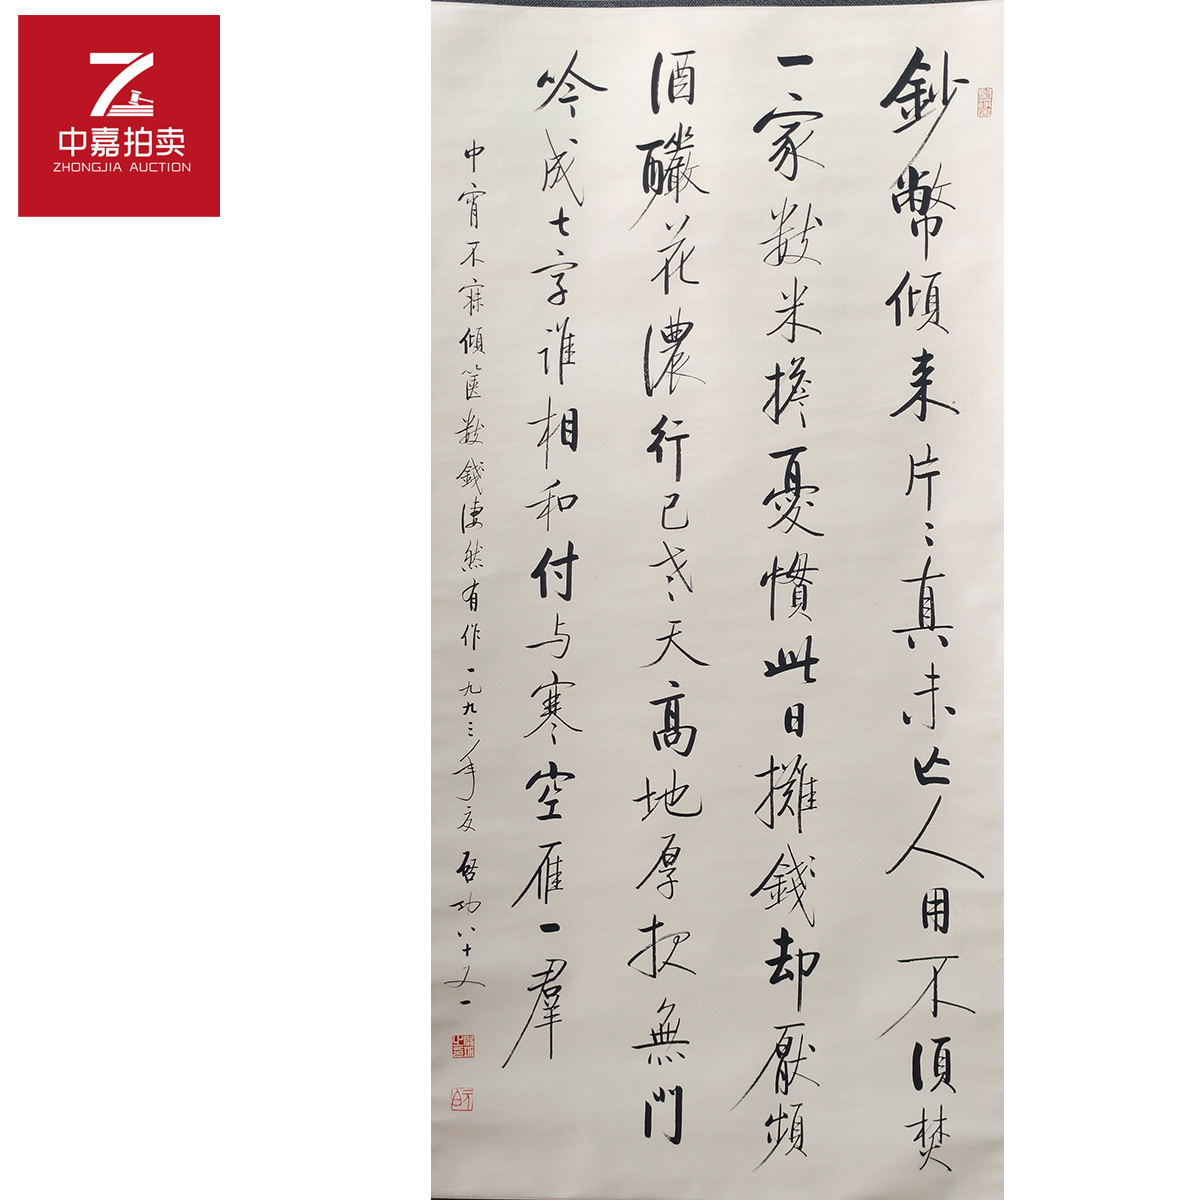 中嘉拍卖
ZHONGJIA AUCTION
鈔幣傾来片〻真未亡人用不須焚
一家数米擔憂慣此日攤錢却厭頻
酒釅花濃行已老天高地厚报無門
吟成七字誰相和付与寒空雁一羣
中宵不寐傾篋数錢凄然有作一九九三年夏 启功八十又一